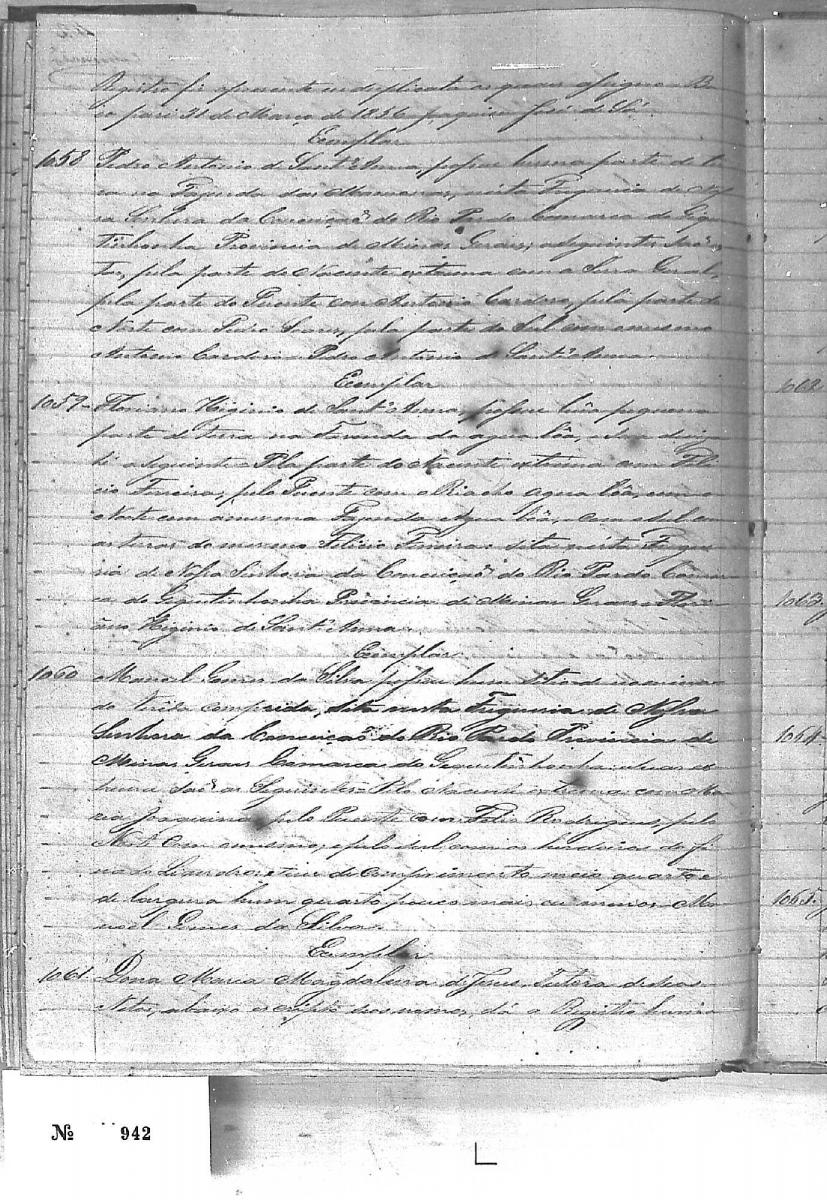 Registro fiz o presente em duplicata os quaes assigno B
31 de Março de 1856 Joaquim José de Sá
Exemplar
1058 Pedro Antonio de Sant'Anna, possue huma parte de ter
ra na Fazenda das nesta Freguezia de Nos
sa Senhora da Conceição do Rio Pardo Comarca do Gequi
tinhonha Provincia de Minas Geraes,
pela parte do Nacente extrema com a Serra Geral,
pela parte do Puente com Antonio Cardozo, pela parte do
Norte com Pedro Soares, pela parte do Sul com o mesmo
Antonio Cardozo Pedro Antonio de Sant'Anna
Exemplar
1059 Higinio de Sant'Anna, possue hũa pequena
parte de terra na Fazenda da agua bôa,
a seguinte Pela parte do Nacente extrema com Feli
cio Ferreira, pelo Puente com o Riacho agua bôa,
Norte com a mesma Fazenda Agua bôa,
as terras do mesmo Felicio Ferreira sita nesta Fregue
zia de Nossa Senhora da Conceição do Rio Pardo Comar
ca do Gequitinhonha Provincia de Minas Geraes
Higinio de Sant'Anna
Exemplar
1060 Manoel Gomes da Silva possue hum sitio
comprida, sita nesta Freguezia de Nossa
Senhora da Conceição do Rio Pardo Provincia de
Minas Geraes Comarca do Gequitinhonha
são as Seguintes Pelo Nacente extrema com Ma
ria Joaquina, pelo Puente com Felis Rodrigues, pelo
Norte com o mesmo, e pelo Sul com os herdeiros do fi
nado de comprimento meio quarto e
de largura hum quarto pouco mais ou menos Ma
noel Gomes da Silva
Exemplar
1061 Dona Maria Magdalena de Jesus Tutora de seos
Netos, abaixo escripto seos nomes, dá a Registro huma
1062
1063
1064
1065
№ 942